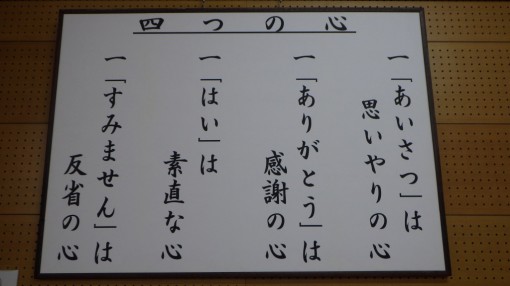 四つの心
一「あいさつ」は
思いやりの心
一「ありがとう」は
感謝の心
一「はい」は
素直な心
一「すみません」は
反省の心